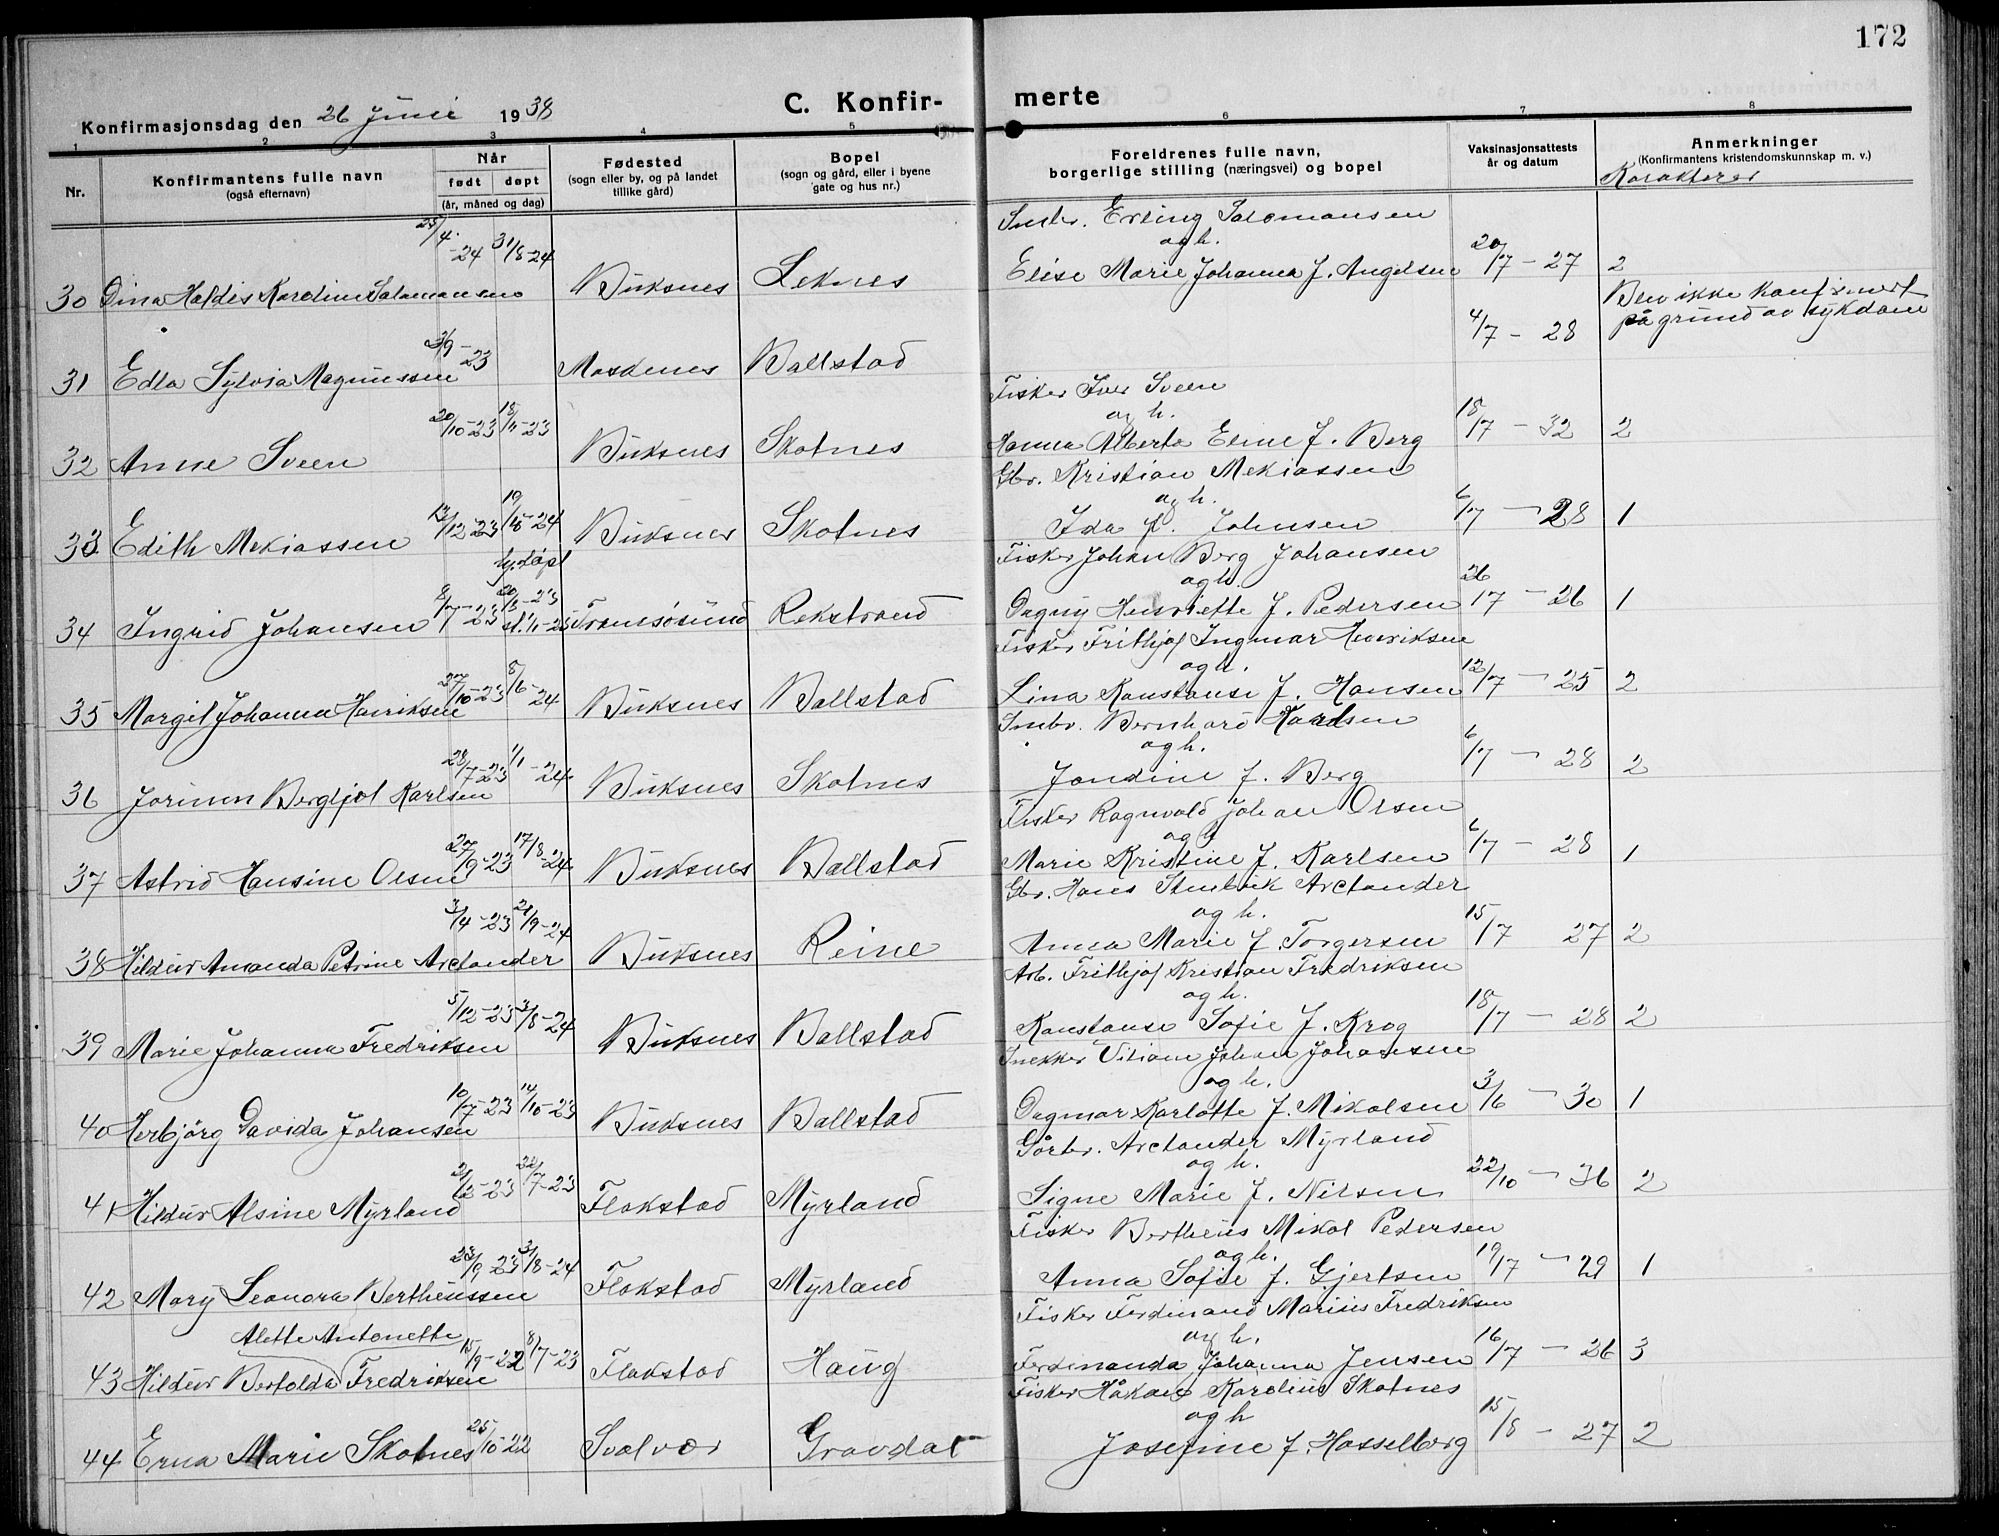 172
C. Konfir- merte
Konfirmasjonsdag den 26 Juni 1938
1 2 3 4 5 6 7 8
Nr. Konfirmantens fulle navn (også efternavn) Når født døpt (år, måned og dag) Fødested (sogn eller by, og på landet tillike gård) Bopel (sogn og gård, eller i byene gate og hus nr.) Foreldrenes fulle navn, borgerlige stilling (næringsvei) og bopel Vaksinasjonsattests år og datum Anmerkninger (Konfirmantens kristendomskunnskap m. v.) Karakterer
Småbr. Erling Salomonsen
og h.
30 Dina Haldis Karoline Salamonsen 25/4-24 31/8-24 Buksnes Leknes Elise Marie Johanna f. Angelsen 20/7-27 2
Blev ikke konfirmert
på grund av sykdom
31 Edla Sylvia Magnussen 2/9-23 Moskenes Ballstad 4/7-28
Fisker Iver Sveen
og h.
32 Anne Sveen 20/10-23 18/11-23 Buksnes Skotnes Hanna Alberta Eline f. Berg 18/7-32 2
Gbr. Kristian Mekiassen
og h.
33 Edith Mekiassen 12/12-23 19/10-24 Buksnes Skotnes Ida f. Johnsen 6/7-28 1
hj.døpt
Fisker Johan Berg Johansen
og h.
34 Ingrid Johansen 8/7-23 20/8-23 st. 1/11-25 Tromsøsund Rekstrand Dagny Henriette f. Pedersen 26/7-26 1
Fisker Frithjof Ingmar Henriksen
og h.
35 Margit Johanna Henriksen 27/10-23 8/6-24 Buksnes Ballstad Lina Konstanse f. Hansen 12/7-25 2
Småbr. Bernhard Karlsen
og h.
36 Jorunn Bergljot Karlsen 28/7-23 1/1-24 Buksnes Skotnes Jondine f. Berg 6/7-28 2
Fisker Ragnvald Johan Olsen
og h
37 Astrid Hansine Olsen 27/9-23 17/8-24 Buksnes Ballstad Marie Kristine f. Karlsen 6/7-28 1
Gbr. Hans Stenbak Arctander
og h.
38 Hildur Amanda Petrine Arctander 3/4-23 21/9-24 Buksnes Reine Anna Marie f. Torgersen 15/7 27 2
Arb. Frithjof Kristian Fredriksen
og h.
39 Marie Johanna Fredriksen 5/12-23 3/8-24 Buksnes Ballstad Konstanse Sofie f. Krog 18/7-28 2
Snekker Viliam Johan Johansen
og h.
40 Herbjörg Davida Johansen 10/7-23 14/10-23 Buksnes Ballstad Dagmar Karlotte f. Mikalsen 3/6-30 1
Gårbr. Arctander Myrland
og h.
41 Hildur Alsine Myrland 2/2-23 22/7-23 Flakstad Myrland Signe Marie f. Nilsen 22/10-36 2
Fisker Bertheus Mikal Pedersen
og h.
42 Mary Leonora Bertheussen 23/9-23 31/8-24 Flakstad Myrland Anna Sofie f. Gjertsen 19/7-29 1
Fisker Ferdinand Marius Fredriksen
Alette Antonette
og h.
43 Hildur Bertolda Fredriksen 15/9-22 8/7-23 Flakstad Haug Ferdinanda Johanna Jensen 16/7-26 3
Fisker Håkon Karolius Skotnes
og h
44 Erna Marie Skotnes 25/10-22 Svolvær Gravdal Josefine f. Hasselberg 15/8-27 2